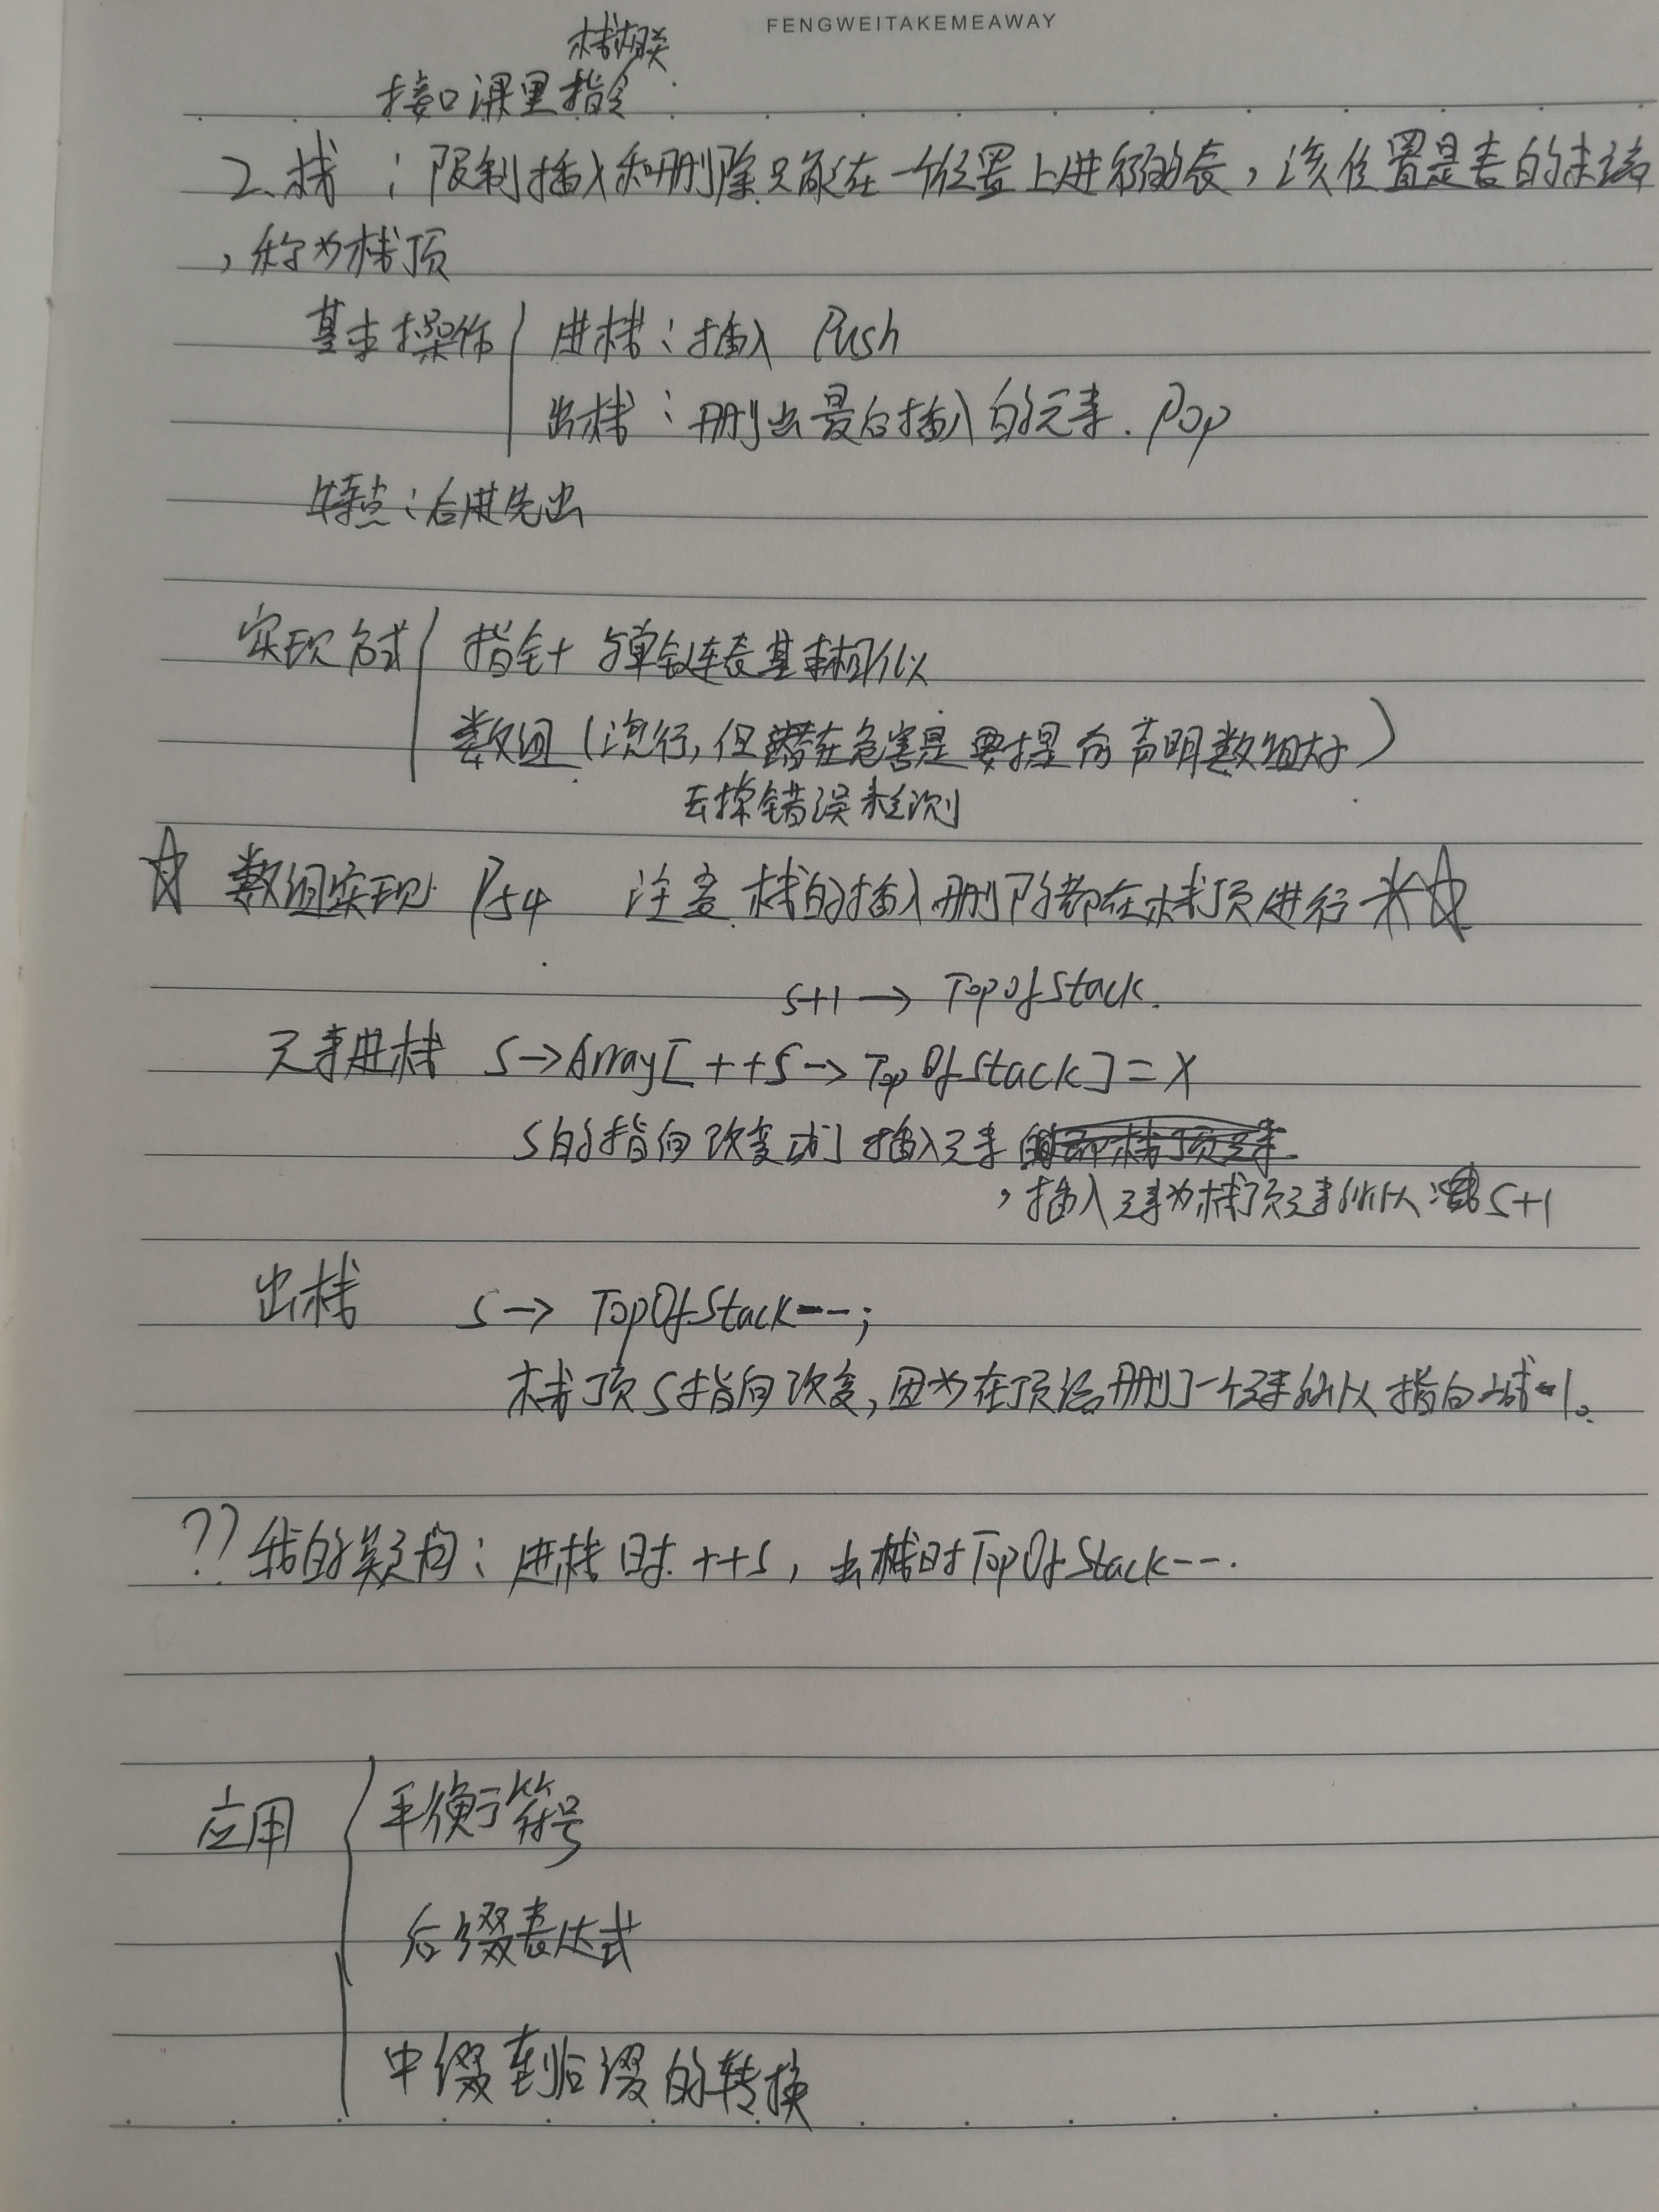 FENGWEITAKEMEAWAY
栈相关
接口课里指令
2、栈：限制插入和删除只能在一个位置上进行的表，该位置是表的末端
，称为栈顶
基本操作 进栈：插入 Push
出栈：删去最后插入的元素. Pop
特点：后进先出
实现方式 指针 与单链表基本相似
数组（流行，但潜在危害是要提前声明数组大小）
去掉错误检测
☆ 数组实现 P54 注意 栈的插入删除都在栈顶进行 ☆
S+1 → TopOfStack.
元素进栈 S→Array[++S→TopOfStack]=X
S的指向改变成了插入元素
，插入元素为栈顶元素所以 S+1
出栈 S→ TopOfStack--;
栈顶S指向改变，因为在顶端删了一个元素所以指向 -1。
??我的疑问：进栈时 ++S，出栈时TopOfStack--.
应用 平衡符号
后缀表达式
中缀到后缀的转换